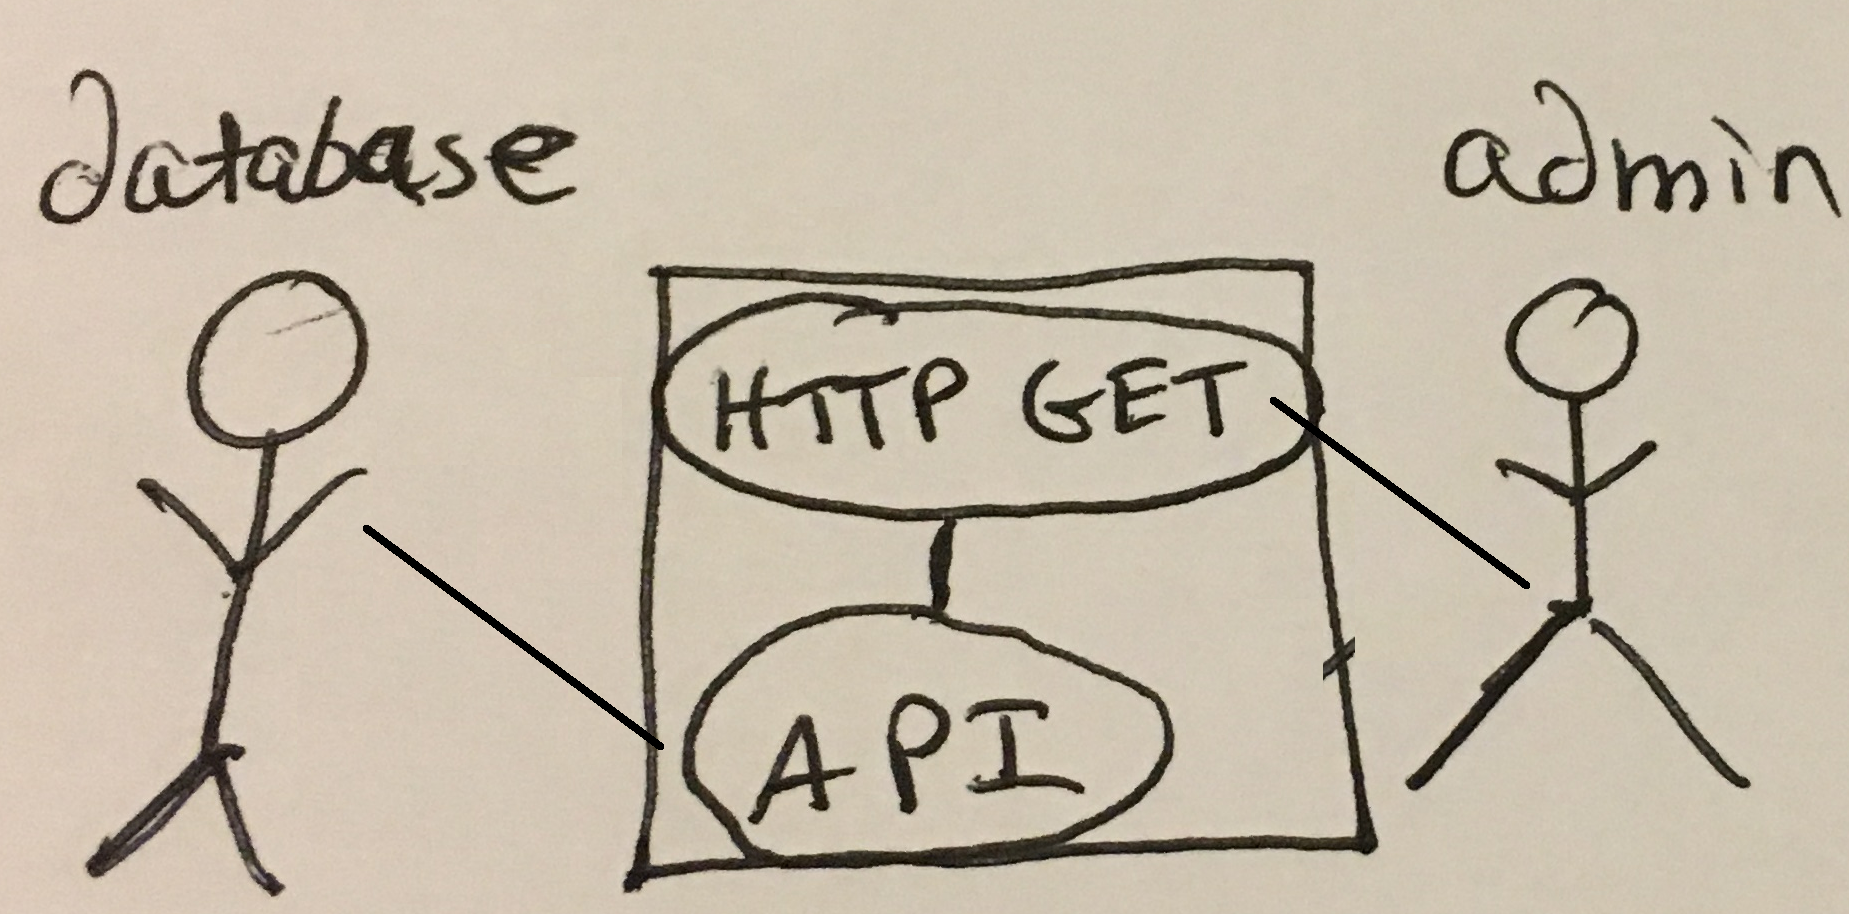 database
admin
HTTP GET
API